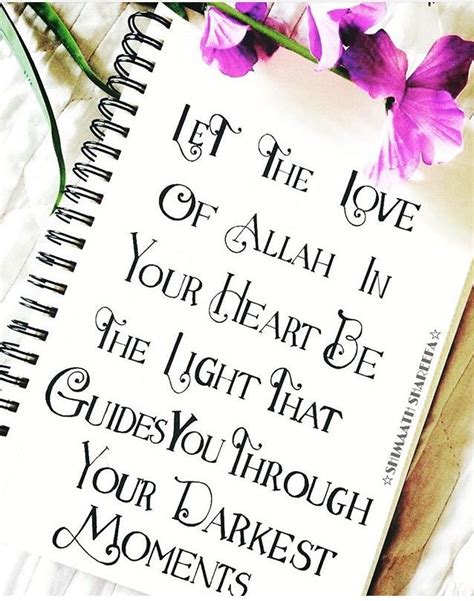 Let The Love
Of Allah In
Your Heart Be
The Light That
Guides You Through
Your Darkest
Moments
☆SHIMAATH SHAREEFA☆